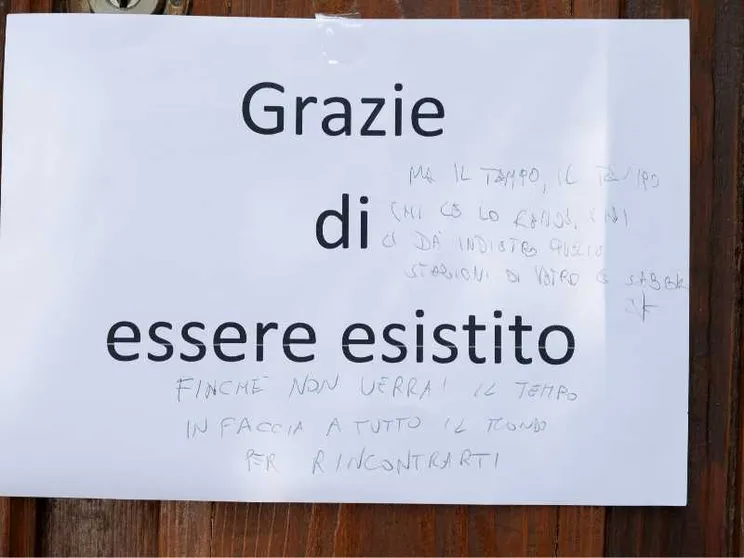 Grazie
di
essere esistito
MA IL TEMPO, IL TEMPO
CHI CE LO RENDE, CHI
CI DÀ INDIETRO
STAGIONI DI VETRO E SABBIA
FINCHÉ NON VERRA' IL TEMPO
IN FACCIA A TUTTO IL MONDO
PER RINCONTRARTI